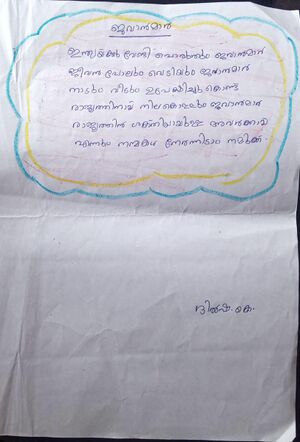 ജവാൻമാർ
ഇന്ത്യയ്ക്കു വേണ്ടി പൊരുതും ജവാൻമാർ
ജീവൻ പോലും വെടിയും ജവാൻമാർ
നാടും വീടും ഉപേക്ഷിച്ചുകൊണ്ട്
രാജ്യത്തിനായ് നിലകൊള്ളും ജവാൻമാർ
രാജ്യത്തിൻ ശക്തിയായുള്ള അവർക്കായ്
എന്നും നന്മകൾ നേർന്നിടാം നമുക്ക്.
ദിൽഷ. കെ.